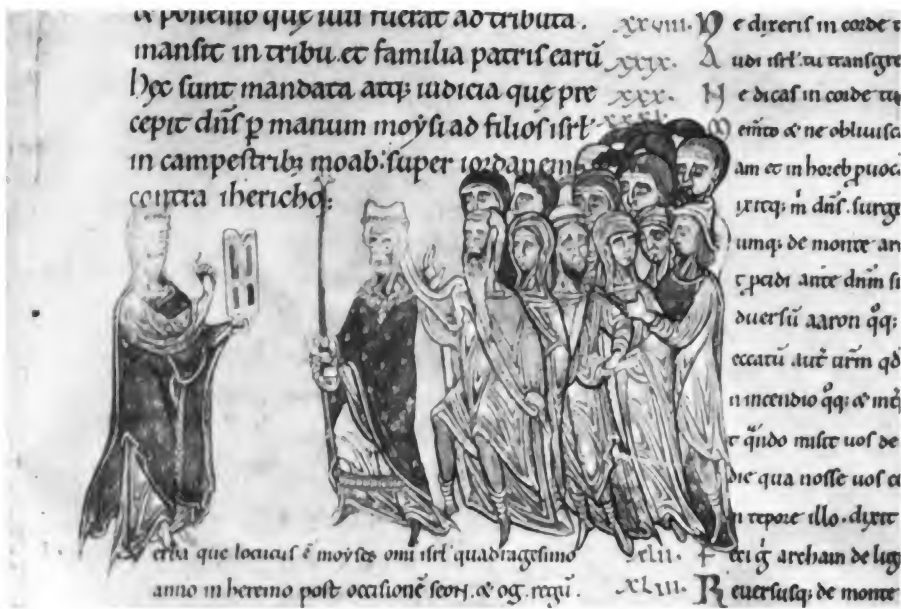 mansit in tribu. et familia patris earū
hęc sunt mandata atq; iudicia quę pre
cepit dn̄s p manum moẏsi ad filios isrl
in campestrib; moab. super iordanem
contra ihericho;
erba que locutus ē moẏses omi isrl quadragesimo
anno in heremo post occisionē seon. & og. regū.
xxviii. N e dixeris in corde t
xxix. A udi isrl. tu transgre
xxx. N e dicas in corde tu
xxxi. M emto & ne obliuisca
am et in horeb puoca
ixitq; m dn̄s. surge
umq; de monte ar
t pcidi ante dn̄m si
duersū aaron qq;
eccatū aut̄ urm qd
n incendio qq; &
t qn̄do misit uos de
die qua nosse uos
n tēpore illo. dixit
xlii. F eci g archam de lig
xliii. R euersusq; de monte